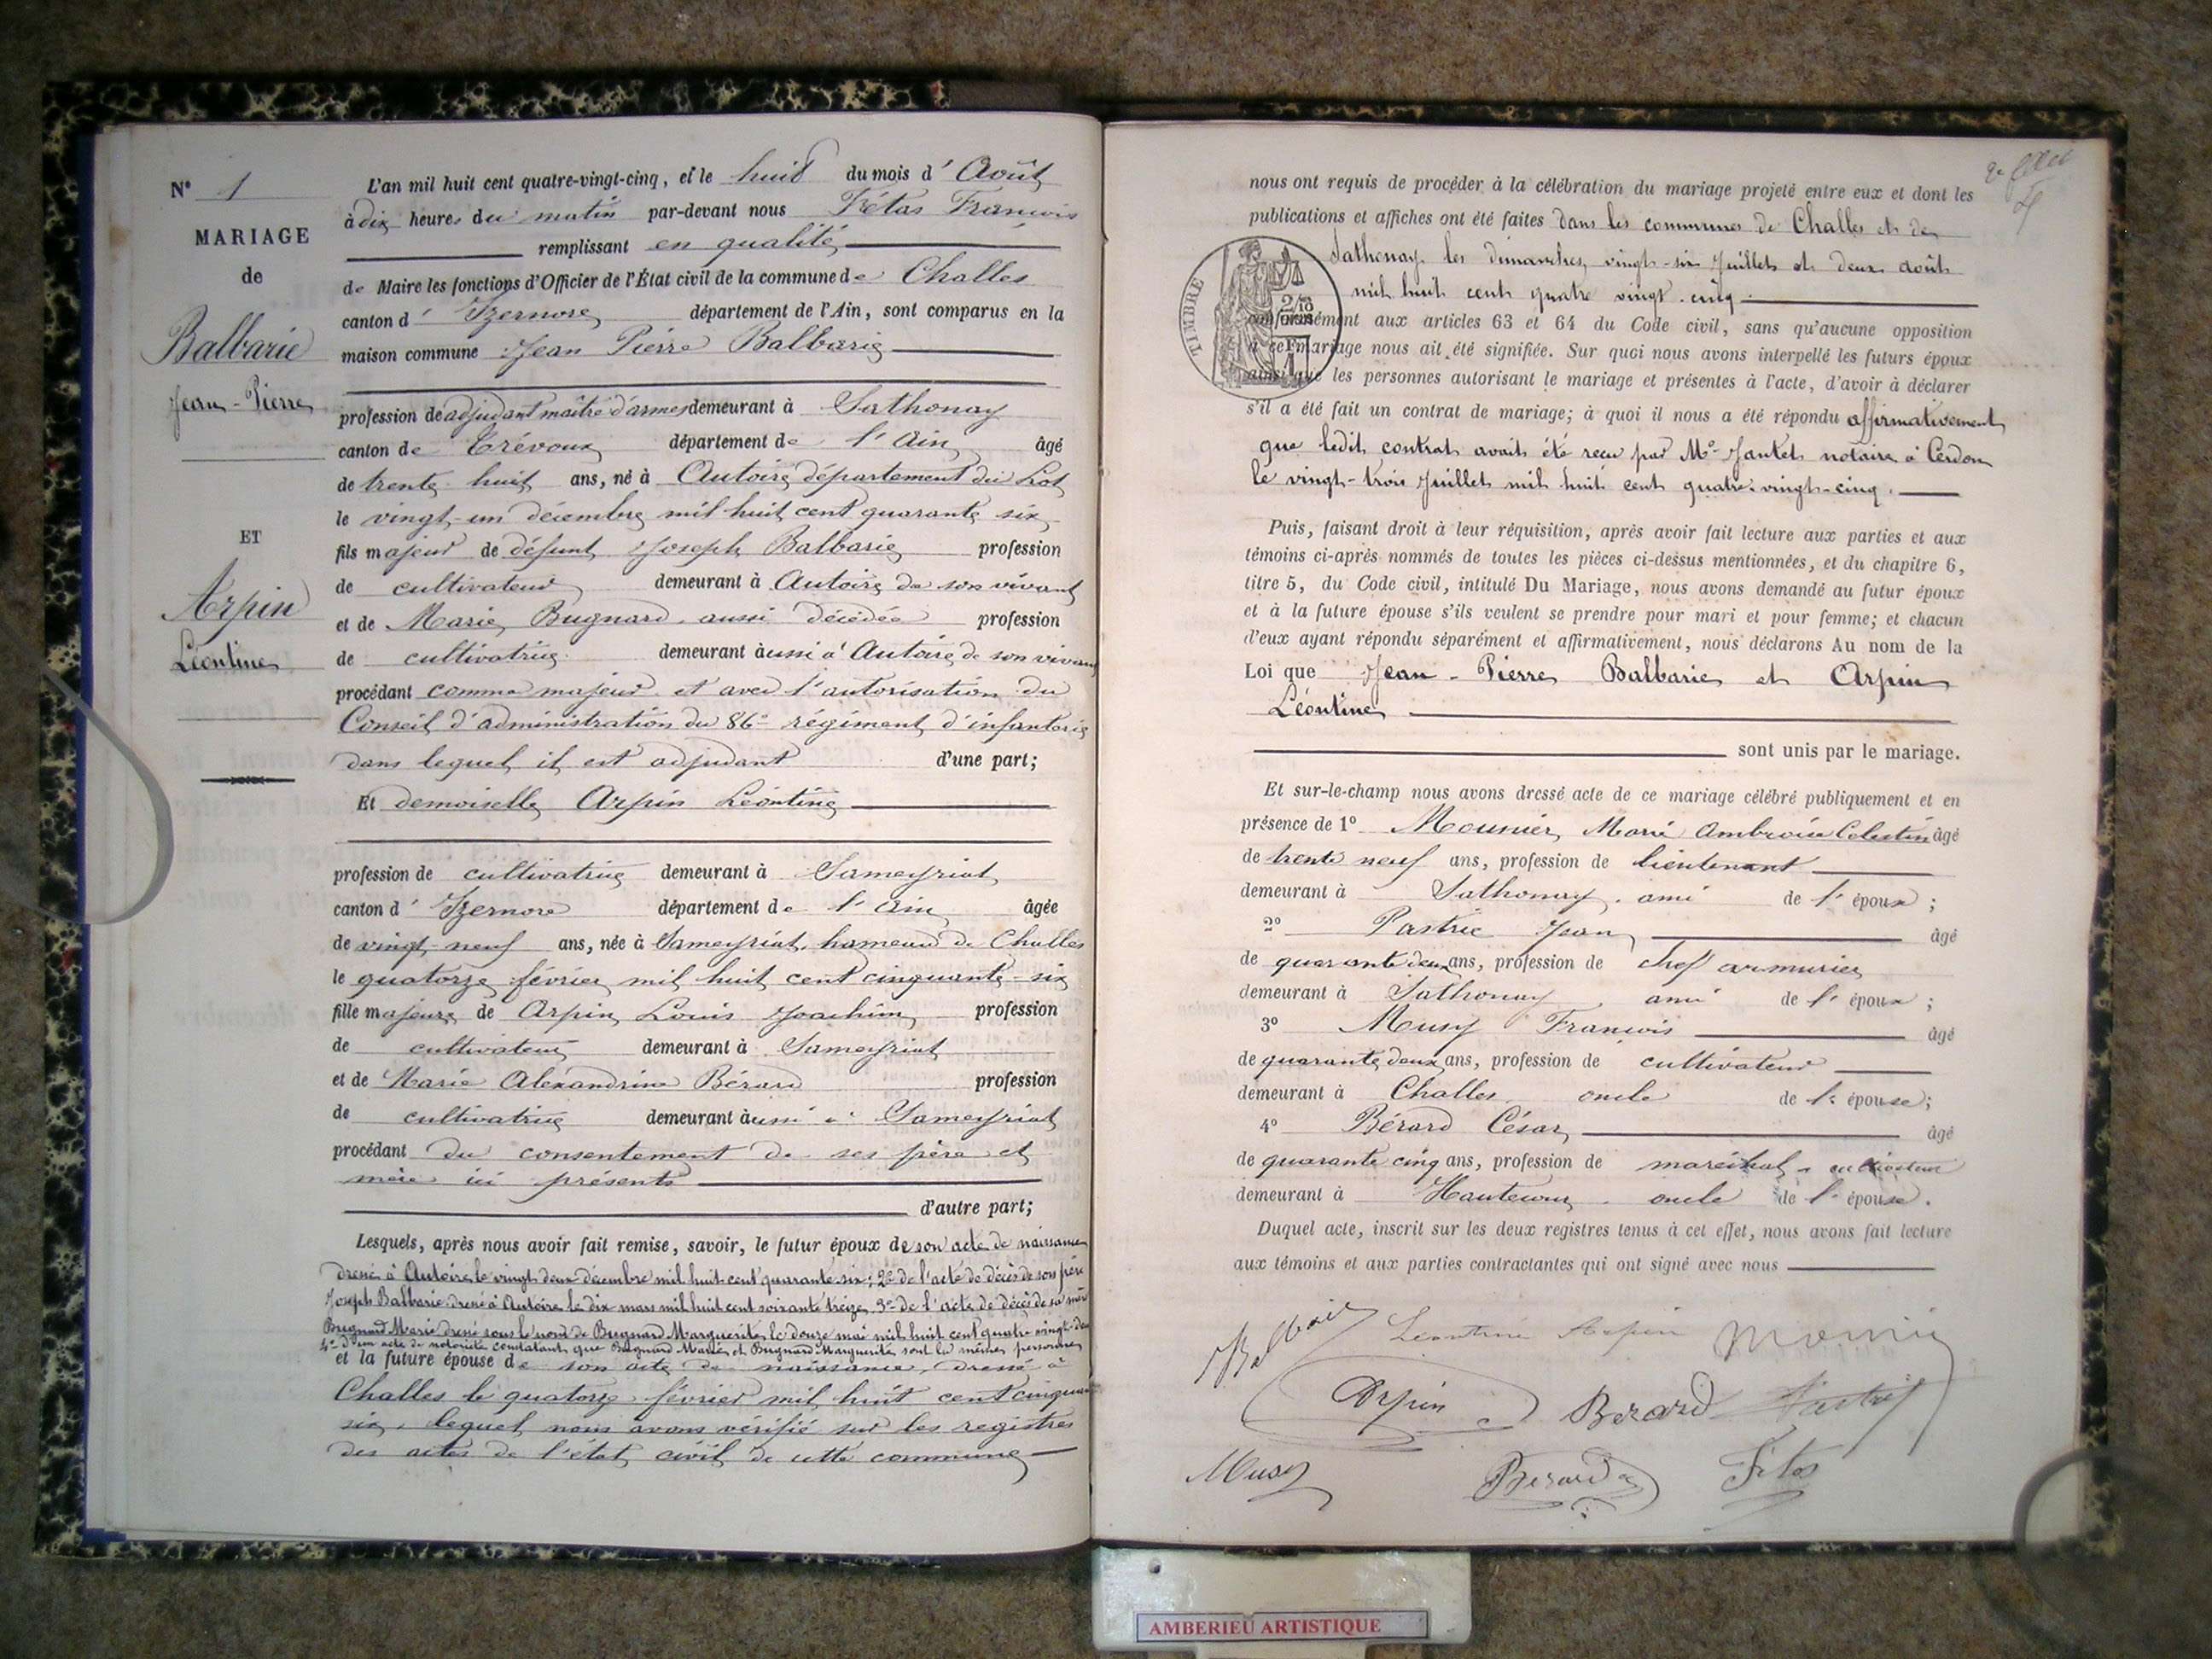 N° 1
MARIAGE
de
Balbarie
Jean-Pierre
ET
Arpin
Léontine
L'an mil huit cent quatre-vingt-cinq, et le huit du mois d'Août
à dix heures du matin par-devant nous Fétas François
remplissant en qualité
de Maire les fonctions d'Officier de l'État civil de la commune de Challes
canton d'Izernore département de l'Ain, sont comparus en la
maison commune Jean Pierre Balbarie
profession de adjudant maître d'armes demeurant à Sathonay
canton de Trévoux département de l'Ain âgé
de trente huit ans, né à Autoire département du Lot
le vingt-un décembre mil huit cent quarante six
fils majeur de défunt Joseph Balbarie profession
de cultivateur demeurant à Autoire de son vivant
et de Marie Bugnard aussi décédée profession
de cultivatrice demeurant aussi à Autoire de son vivant
procédant comme majeur et avec l'autorisation du
Conseil d'administration du 86e régiment d'infanterie
dans lequel il est adjudant d'une part;
Et demoiselle Arpin Léontine
profession de cultivatrice demeurant à Sameyriat
canton d'Izernore département de l'Ain âgée
de vingt-neuf ans, née à Sameyriat, hameau de Challes
le quatorze février mil huit cent cinquante-six
fille majeure de Arpin Louis Joachim profession
de cultivateur demeurant à Sameyriat
et de Marie Alexandrine Bérard profession
de cultivatrice demeurant aussi à Sameyriat
procédant du consentement de ses père et
mère ici présents
d'autre part;
Lesquels, après nous avoir fait remise, savoir, le futur époux de son acte de naissance
dressé à Autoire le vingt deux décembre mil huit cent quarante-six; 2° de l'acte de décès de son père
Joseph Balbarie dressé à Autoire le dix mars mil huit cent soixante treize, 3° de l'acte de décès de sa mère
Bugnard Marie dressé sous le nom de Bugnard Marguerite le douze mai mil huit cent quatre vingt-deux
4° d'un acte de notoriété constatant que Bugnard Marie et Bugnard Marguerite sont la même personne
et la future épouse de son acte de naissance, dressé à
Challes le quatorze février mil huit cent cinquante
six, lequel nous avons vérifié sur les registres
des actes de l'état civil de cette commune
nous ont requis de procéder à la célébration du mariage projeté entre eux et dont les
publications et affiches ont été faites dans les communes de Challes et de
Sathonay les dimanches vingt-six Juillet et deux août
mil huit cent quatre vingt-cinq
TIMBRE
conformément aux articles 63 et 64 du Code civil, sans qu'aucune opposition
à ce mariage nous ait été signifiée. Sur quoi nous avons interpellé les futurs époux
ainsi que les personnes autorisant le mariage et présentes à l'acte, d'avoir à déclarer
s'il a été fait un contrat de mariage; à quoi il nous a été répondu affirmativement
que ledit contrat avait été reçu par Me Jantet notaire à Cerdon
le vingt-trois Juillet mil huit cent quatre-vingt-cinq.
Puis, faisant droit à leur réquisition, après avoir fait lecture aux parties et aux
témoins ci-après nommés de toutes les pièces ci-dessus mentionnées, et du chapitre 6,
titre 5, du Code civil, intitulé Du Mariage, nous avons demandé au futur époux
et à la future épouse s'ils veulent se prendre pour mari et pour femme; et chacun
d'eux ayant répondu séparément et affirmativement, nous déclarons Au nom de la
Loi que Jean-Pierre Balbarie et Arpin
Léontine
sont unis par le mariage.
Et sur-le-champ nous avons dressé acte de ce mariage célébré publiquement et en
présence de 1° Mounier Marie Ambroise Celestin âgé
de trente neuf ans, profession de lieutenant
demeurant à Sathonay, ami de l'époux;
2° Pastrie Jean âgé
de quarante deux ans, profession de chef armurier
demeurant à Sathonay, ami de l'époux;
3° Musy François âgé
de quarante deux ans, profession de cultivateur
demeurant à Challes, oncle de l'épouse;
4° Bérard César âgé
de quarante cinq ans, profession de maréchal cultivateur
demeurant à Hautecour, oncle de l'épouse.
Duquel acte, inscrit sur les deux registres tenus à cet effet, nous avons fait lecture
aux témoins et aux parties contractantes qui ont signé avec nous
Balbarie Léontine Arpin Mounier
Arpin Berard Pastrie
Musy Berard Fétas
AMBERIEU ARTISTIQUE